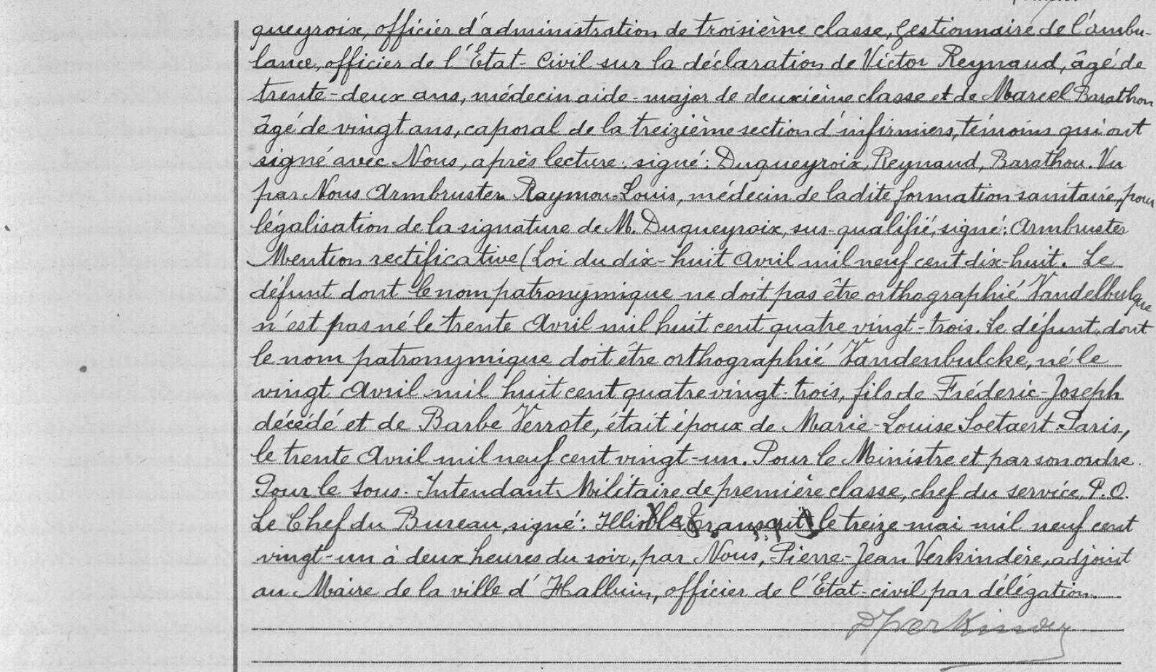 queyroix, officier d'administration de troisième classe, Gestionnaire de l'ambu-
lance, officier de l'État-Civil sur la déclaration de Victor Reynaud, âgé de
trente-deux ans, médecin aide-major de deuxième classe et de Marcel Barathon
âgé de vingt ans, caporal de la treizième section d'infirmiers, témoins qui ont
signé avec Nous, après lecture. signé: Duqueyroix, Reynaud, Barathon. Vu
par Nous Armbruster Raymon-Louis, médecin de la dite formation sanitaire, pour
légalisation de la signature de M. Duqueyroix, sus-qualifié, signé: Armbruster
Mention rectificative (Loi du dix-huit Avril mil neuf cent dix-huit. Le
défunt dont le nom patronymique ne doit pas être orthographié Vandelbulque
n'est pas né le trente Avril mil huit cent quatre vingt-trois. Le défunt dont
le nom patronymique doit être orthographié Vandenbulcke, né le
vingt Avril mil huit cent quatre vingt-trois, fils de Fréderic-Joseph
décédé et de Barbe Verrote, était époux de Marie-Louise Soetaert. Paris,
le trente Avril mil neuf cent vingt-un. Pour le Ministre et par son ordre.
Pour le Sous-Intendant Militaire de première classe, chef du service, P.O.
Le Chef du Bureau, signé: Illisible. Transcrit le treize mai mil neuf cent
vingt-un à deux heures du soir, par Nous, Pierre-Jean Verkindère, adjoint
au Maire de la ville d'Halluin, officier de l'État-civil par délégation.